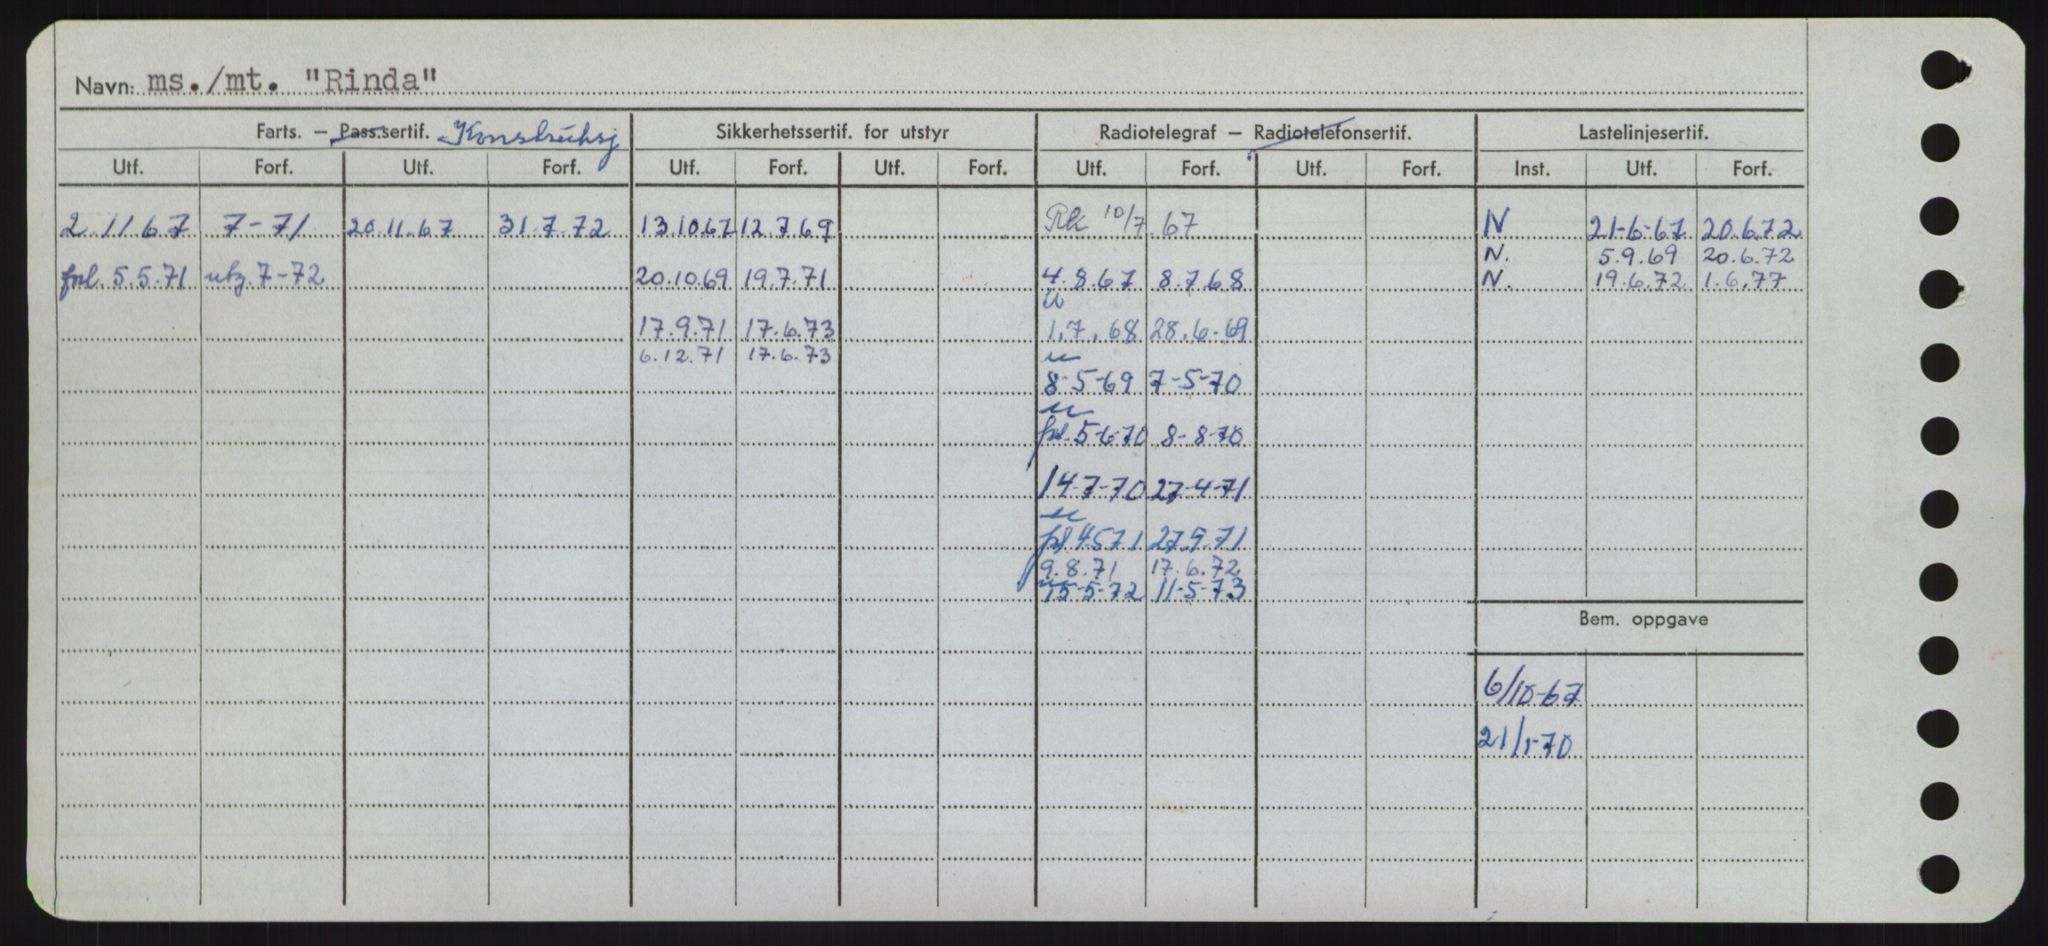 Navn: ms./mt. "Rinda"
Farts. – Pass.sertif. Konstruksj Sikkerhetssertif. for utstyr Radiotelegraf – Radiotelefonsertif. Lastelinjesertif.
Utf. Forf. Utf. Forf. Utf. Forf. Utf. Forf. Utf. Forf. Utf. Forf. Inst. Utf. Forf.
2.11.67 7-71 20.11.67 31.7.72 13.10.67 12.7.69 10/7.67 N 21-6-67 20.6.72
N. 5.9.69 20.6.72
frl. 5.5.71 utg. 7-72 20.10.69 19.7.71 4.8.67 8.7.68 N. 19.6.72 1.6.77
17.9.71 17.6.73 1.7.68 28.6-69
6.12.71 17.6.73
8-5-69 7-5-70
frl. 5-6-70 8-8-70
14-7-70 27-4-71
frl. 4.5.71 27.9.71
9.8.71 17.6.72
15-5-72 11-5-73
Bem. oppgave
6/10-67
21/1-70